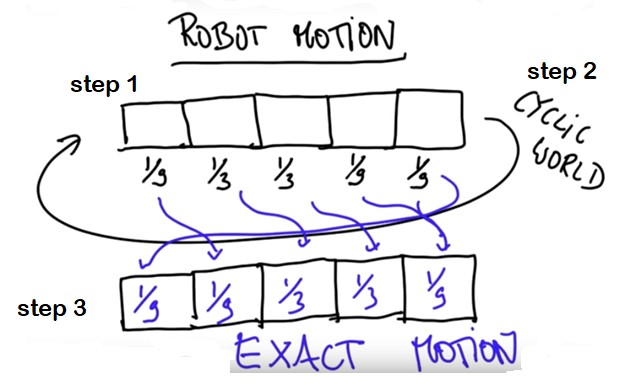 ROBOT MOTION
step 1
step 2
CYCLIC
WORLD
1/9 1/3 1/3 1/9 1/9
step 3
1/9 1/9 1/3 1/3 1/9
EXACT MOTION